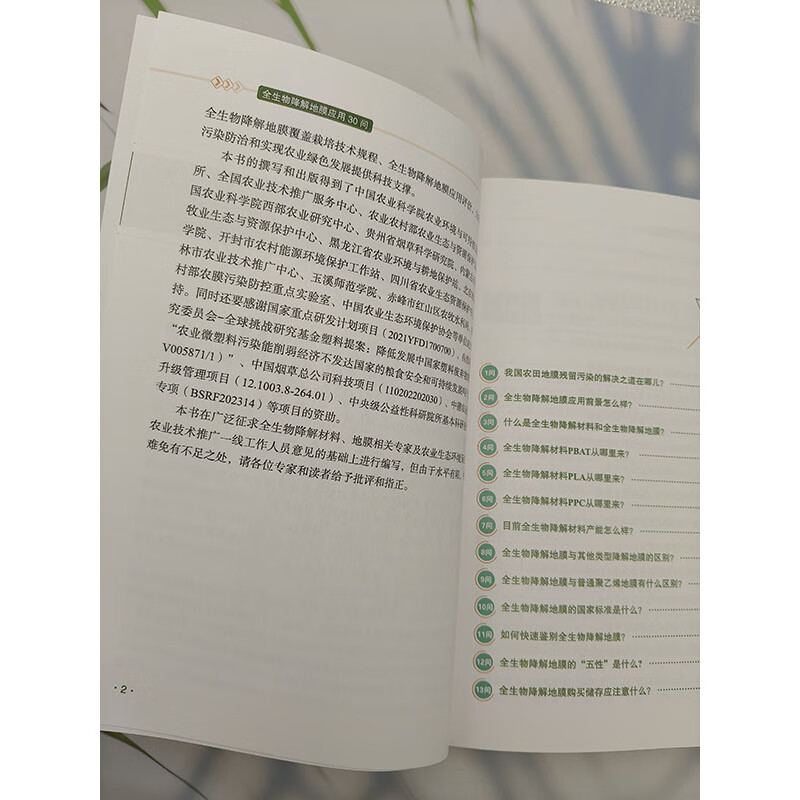 全生物降解地膜应用30问
全生物降解地膜覆盖栽培技术规程、全生物降解地膜应用评价
污染防治和实现农业绿色发展提供科技支撑。
本书的撰写和出版得到了中国农业科学院农业环境与可持续
所、全国农业技术推广服务中心、农业农村部农业生态与资源保护
国农业科学院西部农业研究中心、贵州省烟草科学研究院、内蒙古
牧业生态与资源保护中心、黑龙江省农业环境与耕地保护站、北京
学院、开封市农村能源环境保护工作站、四川省农业生态资源保护
林市农业技术推广中心、玉溪师范学院、赤峰市红山区农牧水利局
村部农膜污染防控重点实验室、中国农业生态环境保护协会等单位的
持。同时还要感谢国家重点研发计划项目（2021YFD1700700）、
究委员会-全球挑战研究基金塑料提案：降低发展中国家塑料废弃
“农业微塑料污染能削弱经济不发达国家的粮食安全和可持续发展
V005871/1）”、中国烟草总公司科技项目（110202202030）、中
升级管理项目（12.1003.8-264.01）、中央级公益性科研院所基本科研
专项（BSRF202314）等项目的资助。
本书在广泛征求全生物降解材料、地膜相关专家及农业生态环境
农业技术推广一线工作人员意见的基础上进行编写，但由于水平有限，
难免有不足之处，请各位专家和读者给予批评和指正。
·2·
1问 我国农田地膜残留污染的解决之道在哪儿？
2问 全生物降解地膜应用前景怎么样？
3问 什么是全生物降解材料和全生物降解地膜？
4问 全生物降解材料PBAT从哪里来？
5问 全生物降解材料PLA从哪里来？
6问 全生物降解材料PPC从哪里来？
7问 目前全生物降解材料产能怎么样？
8问 全生物降解地膜与其他类型降解地膜的区别？
9问 全生物降解地膜与普通聚乙烯地膜有什么区别？
10问 全生物降解地膜的国家标准是什么？
11问 如何快速鉴别全生物降解地膜？
12问 全生物降解地膜的“五性”是什么？
13问 全生物降解地膜购买储存应注意什么？